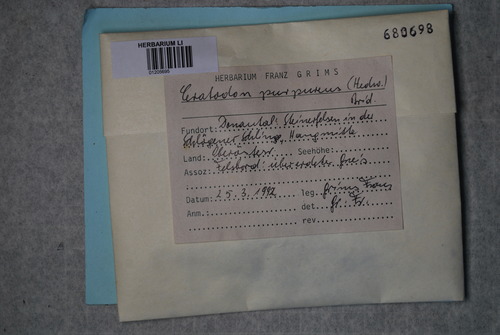 HERBARIUM LI
680698
HERBARIUM FRANZ GRIMS
Ceratodon purpureus (Hedw.)
Brid.
Fundort: Donautal: Steinerfelsen in der
Schlögener Schlinge, Hangmitte
Land: Oberösterr. Seehöhe:
Assoz: Felsband über Gneis
Datum: 25. 3. 1992 leg. Grims Franz
Anm.: det. Gr. Fr.
rev.